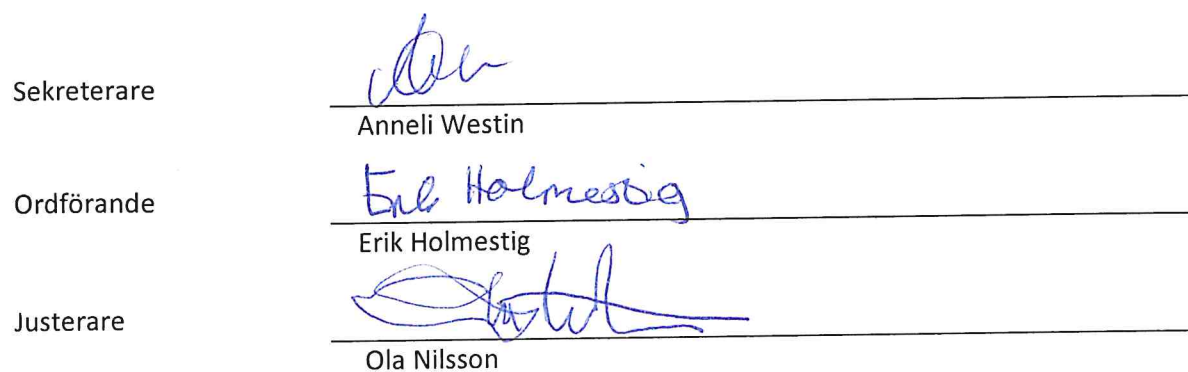 Sekreterare
Anneli Westin
Ordförande
Erik Holmestig
Erik Holmestig
Justerare
Ola Nilsson